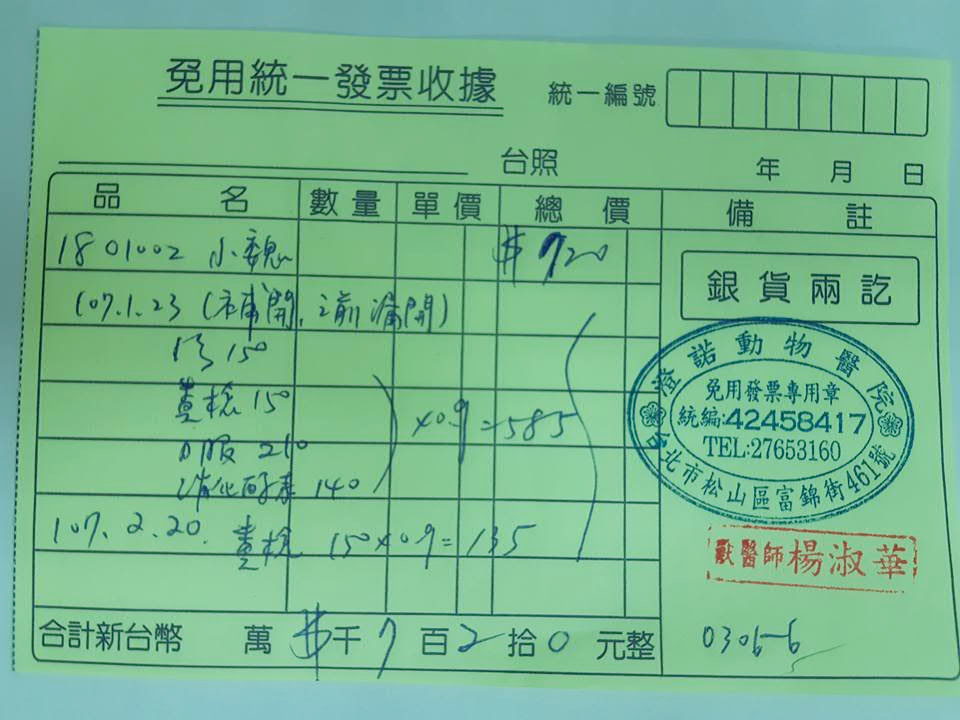 免用統一發票收據
統一編號
台照
年 月 日
品 名 數量 單價 總價 備註
1801002 小魏 $720
107.1.23 (補開,之前漏開)
150
糞檢 150
口服 210
消化酵素 140
×0.9=585
107.2.20. 糞檢 150×0.9=135
合計新台幣 萬 $千7百2拾0元整
銀貨兩訖
澄諾動物醫院
免用發票專用章
統編:42458417
TEL:27653160
台北市松山區富錦街461號
獸醫師楊淑華
0306-6